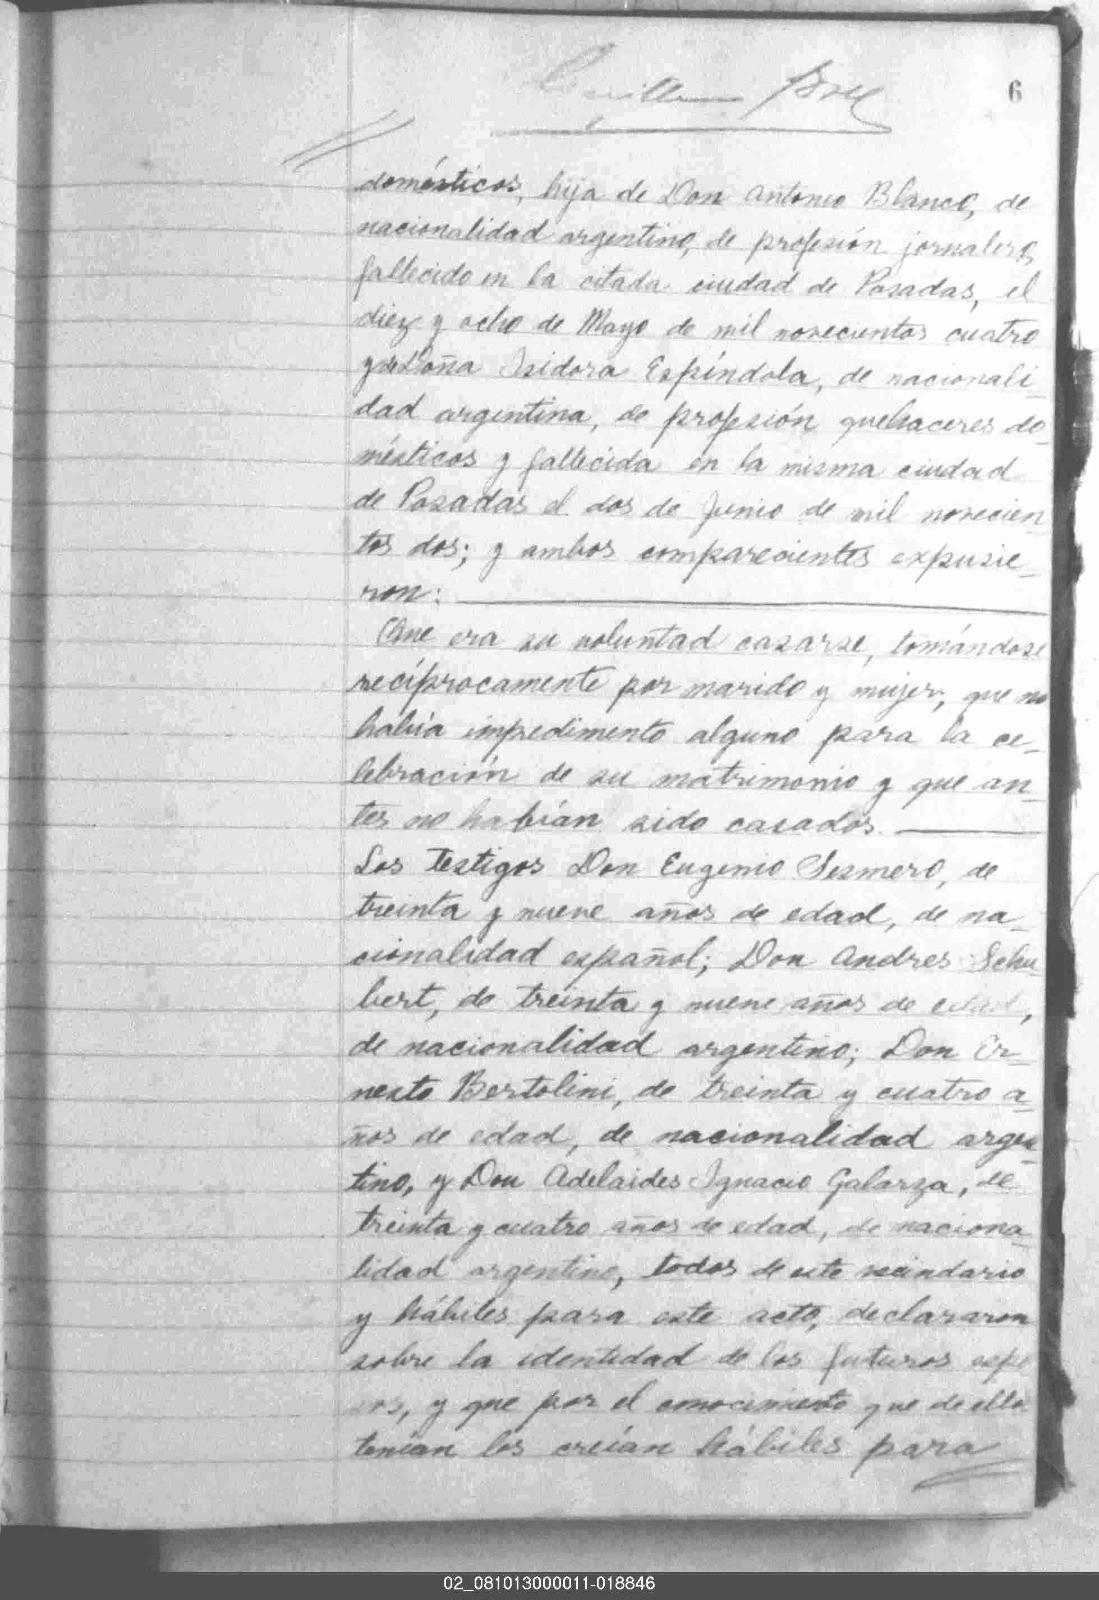 6
domésticos, hija de Don Antonio Blanco, de
nacionalidad argentino, de profesión jornalero,
fallecido en la citada ciudad de Posadas, el
diez y ocho de Mayo de mil novecientos cuatro
y de Doña Isidora Espíndola, de nacionali
dad argentina, de profesión quehaceres do_
mésticos y fallecida en la misma ciudad
de Posadas el dos de Junio de mil novecien
tos dos; y ambos comparecientes expusie_
ron:
Que era su voluntad casarse, tomándose
recíprocamente por marido y mujer; que no
había impedimento alguno para la ce_
lebración de su matrimonio y que an_
tes no habían sido casados.
Los Testigos Don Eugenio Sesmero, de
treinta y nueve años de edad, de na_
cionalidad español; Don Andres Schu
bert, de treinta y nueve años de edad,
de nacionalidad argentino; Don Er_
nesto Bertolini, de treinta y cuatro a_
ños de edad, de nacionalidad argen_
tino, y Don Adelaides Ignacio Galarza, de
treinta y cuatro años de edad, de naciona_
lidad argentino, todos de este vecindario
y hábiles para este acto, declararon
sobre la identidad de los futuros espo
sos, y que por el conocimiento que de ellos
tenían los creían hábiles para
02_081013000011-018846